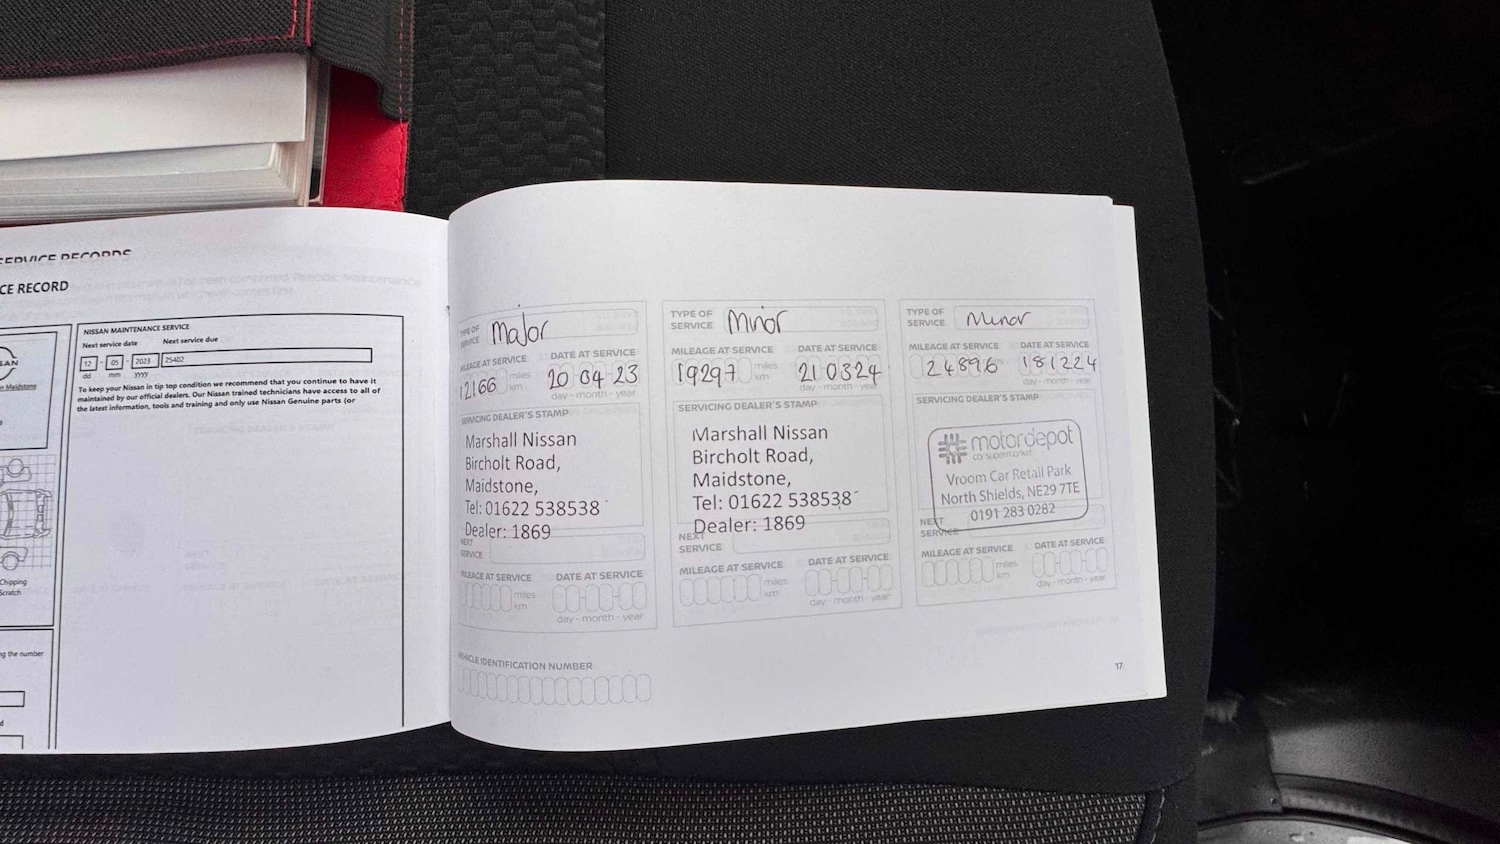 SERVICE RECORDS
CE RECORD
SAN
n Maidstone
NISSAN MAINTENANCE SERVICE
Next service date
Next service due
12 - 05 - 2023
25402
dd mm yyyy
To keep your Nissan in tip top condition we recommend that you continue to have it
maintained by our official dealers. Our Nissan trained technicians have access to all of
the latest information, tools and training and only use Nissan Genuine parts (or
Chipping
Scratch
ng the number
d
TYPE OF
SERVICE
Major
MILEAGE AT SERVICE
DATE AT SERVICE
12166
miles
km
20 04 23
day - month - year
SERVICING DEALER'S STAMP
Marshall Nissan
Bircholt Road,
Maidstone,
Tel: 01622 538538
Dealer: 1869
NEXT
SERVICE
MILEAGE AT SERVICE
DATE AT SERVICE
miles
km
day - month - year
VEHICLE IDENTIFICATION NUMBER
TYPE OF
SERVICE
Minor
MILEAGE AT SERVICE
DATE AT SERVICE
19297
miles
km
21 03 24
day - month - year
SERVICING DEALER'S STAMP
Marshall Nissan
Bircholt Road,
Maidstone,
Tel: 01622 538538
Dealer: 1869
NEXT
SERVICE
MILEAGE AT SERVICE
DATE AT SERVICE
miles
km
day - month - year
TYPE OF
SERVICE
Minor
MILEAGE AT SERVICE
DATE AT SERVICE
24896
miles
km
181224
day - month - year
SERVICING DEALER'S STAMP
motordepot
car supermarket
Vroom Car Retail Park
North Shields, NE29 7TE
0191 283 0282
NEXT
SERVICE
MILEAGE AT SERVICE
DATE AT SERVICE
miles
km
day - month - year
17